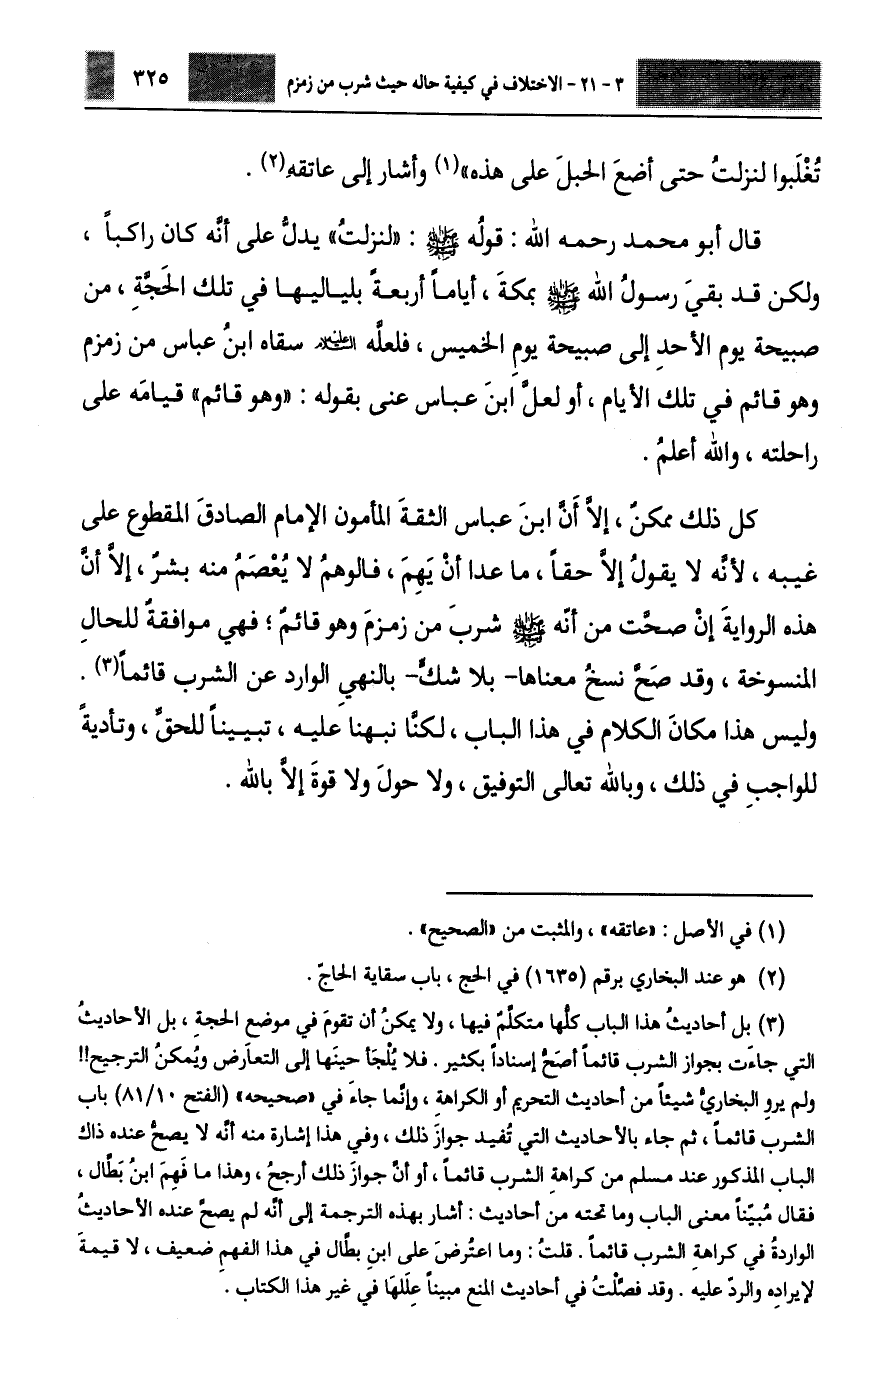 ٣ - ٢١ - الاختلاف في كيفية حاله حيث شرب من زمزم ٣٢٥
تُغْلَبوا لنزلتُ حتى أضعَ الحبلَ على هذه»(١) وأشار إلى عاتقه(٢) .
قال أبو محمد رحمه الله : قولُه ﷺ : «لنزلتُ» يدلُّ على أنَّه كان راكباً ،
ولكن قد بقيَ رسولُ الله ﷺ بمكةَ ، أياماً أربعةً بلياليها في تلك الحَجَّةِ ، من
صبيحة يوم الأحدِ إلى صبيحة يومِ الخميس ، فلعلَّه الْعَلَيْهِ السلام سقاه ابنُ عباس من زمزم
وهو قائم في تلك الأيام ، أو لعلَّ ابنَ عباس عنى بقوله : «وهو قائم» قيامَه على
راحلته ، والله أعلمُ .
كل ذلك ممكنٌ ، إلاَّ أنَّ ابنَ عباس الثقةَ المأمون الإمام الصادقَ المقطوع على
غيبه ، لأنَّه لا يقولُ إلاَّ حقاً ، ما عدا أنْ يَهِمَ ، فالوهمُ لا يُعْصَمُ منه بشرٌ ، إلاَّ أنَّ
هذه الروايةَ إنْ صحَّت من أنّه ﷺ شربَ من زمزمَ وهو قائمٌ ؛ فهي موافقةٌ للحالِ
المنسوخة ، وقد صَحَّ نسخُ معناها- بلا شكٍّ- بالنهيِ الوارد عن الشرب قائماً(٣) .
وليس هذا مكانَ الكلام في هذا الباب ، لكنَّا نبهنا عليه ، تبييناً للحقِّ ، وتأديةً
للواجبِ في ذلك ، وبالله تعالى التوفيق ، ولا حولَ ولا قوةَ إلاَّ بالله .
(١) في الأصل : «عاتقه» ، والمثبت من «الصحيح» .
(٢) هو عند البخاري برقم (١٦٣٥) في الحج ، باب سقاية الحاجّ .
(٣) بل أحاديثُ هذا الباب كلُّها متكلَّمٌ فيها ، ولا يمكنُ أن تقومَ في موضع الحجةِ ، بل الأحاديثُ
التي جاءَت بجواز الشرب قائماً أصَحُّ إسناداً بكثير . فلا يُلْجَأ حينَها إلى التعارض ويُمكنُ الترجيح!!
ولم يروِ البخاريُّ شيئاً من أحاديث التحريم أو الكراهة ، وإنَّما جاءَ في «صحيحه» (الفتح ٨١/١٠) باب
الشرب قائماً ، ثم جاء بالأحاديث التي تُفيد جوازَ ذلك ، وفي هذا إشارة منه أنَّه لا يصحُّ عنده ذاك
الباب المذكور عند مسلم من كراهةِ الشرب قائماً ، أو أنَّ جوازَ ذلك أرجحُ ، وهذا ما فَهِمَ ابنُ بَطَّال ،
فقال مُبيّناً معنى الباب وما تحته من أحاديث : أشار بهذه الترجمة إلى أنَّه لم يصحَّ عنده الأحاديثُ
الواردةُ في كراهة الشرب قائماً . قلتُ : وما اعتُرضَ على ابنِ بطَّال في هذا الفهمِ ضعيف ، لا قيمةَ
لإيرادِه والردِّ عليه . وقد فصَّلْتُ في أحاديث المنع مبيناً عِلَلَهَا في غير هذا الكتاب .